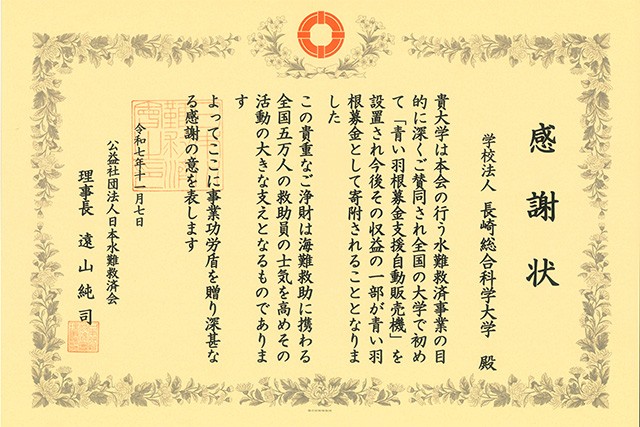 感謝状
学校法人 長崎総合科学大学 殿
貴大学は本会の行う水難救済事業の目
的に深くご賛同され全国の大学で初め
て「青い羽根募金支援自動販売機」を
設置され今後その収益の一部が青い羽
根募金として寄附されることとなりま
した
この貴重なご浄財は海難救助に携わる
全国五万人の救助員の士気を高めその
活動の大きな支えとなるものでありま
す
よってここに事業功労盾を贈り深甚な
る感謝の意を表します
令和七年十一月七日
公益社団法人日本水難救済会
理事長 遠山純司